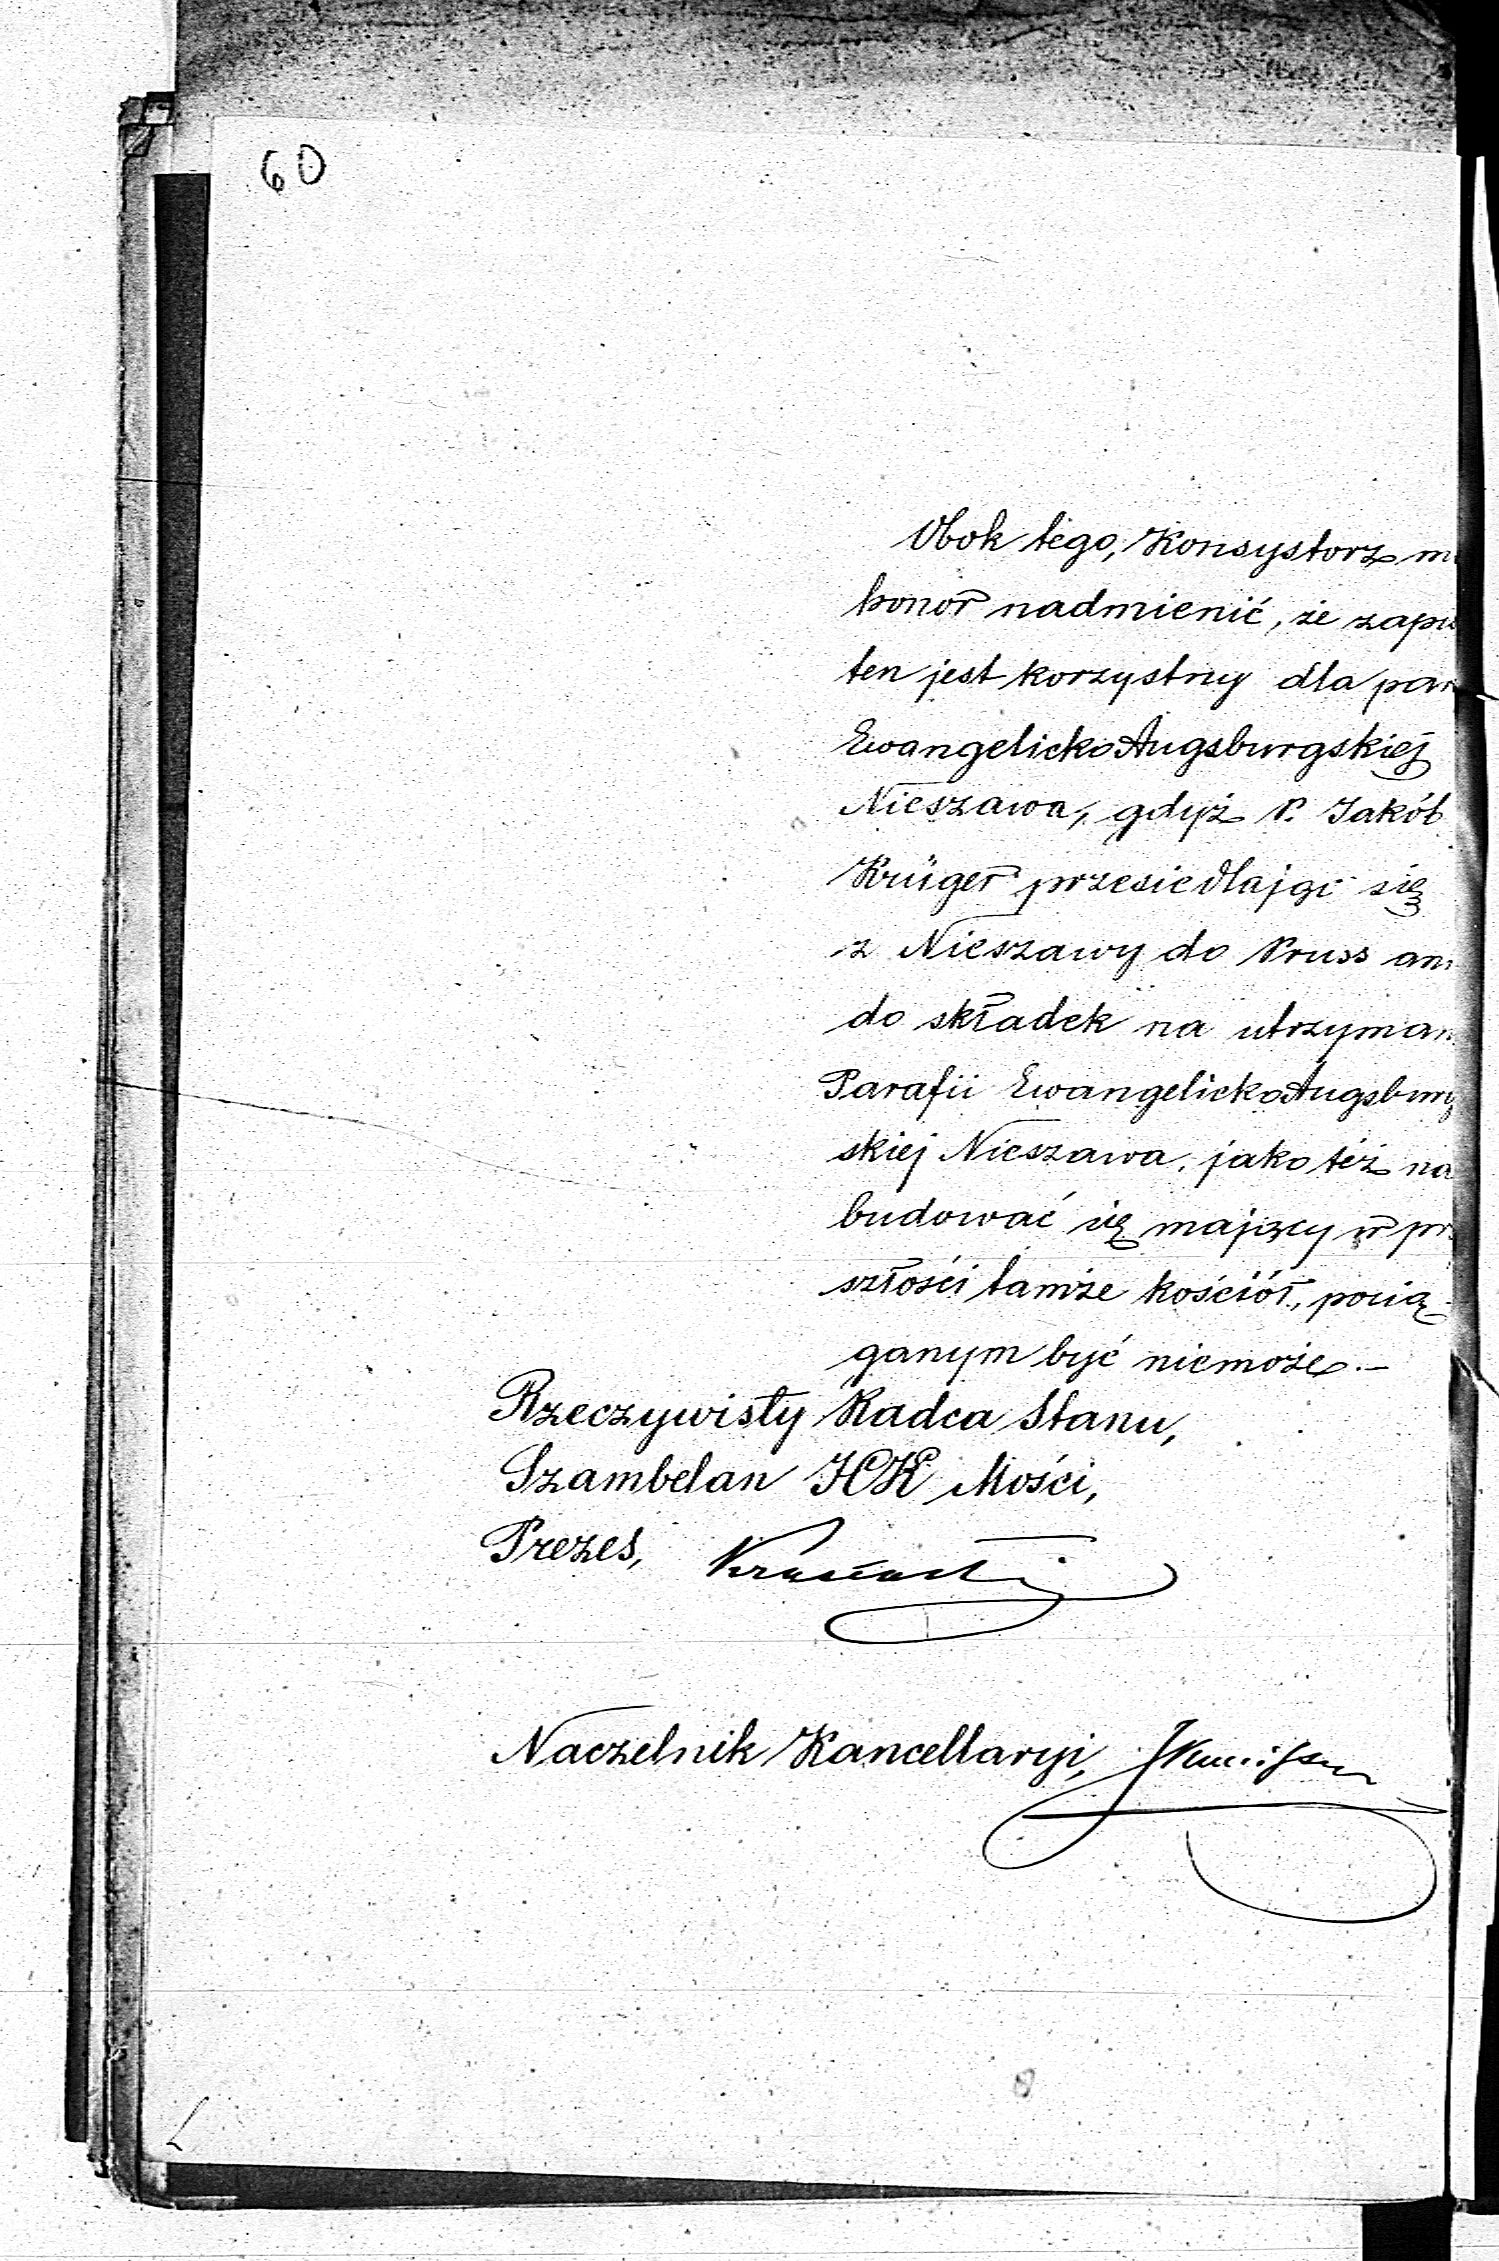 60
Obok tego, Konsystorz m
honor nadmienić, że zapi
ten jest korzystny dla par
Ewangelicko Augsburgskiej
Nieszawa, gdyż P. Jakób
Krüger przesiedlając się
z Nieszawy do Pruss ani
do składek na utrzyman
Parafii Ewangelicko Augsburg
skiej Nieszawa, jako też na
budować się mający w pr
szłości tamże kościół, pocią
ganym być niemoże.—
Rzeczywisty Radca Stanu,
Szambelan JCK Mości,
Prezes,
Naczelnik Kancellaryi,